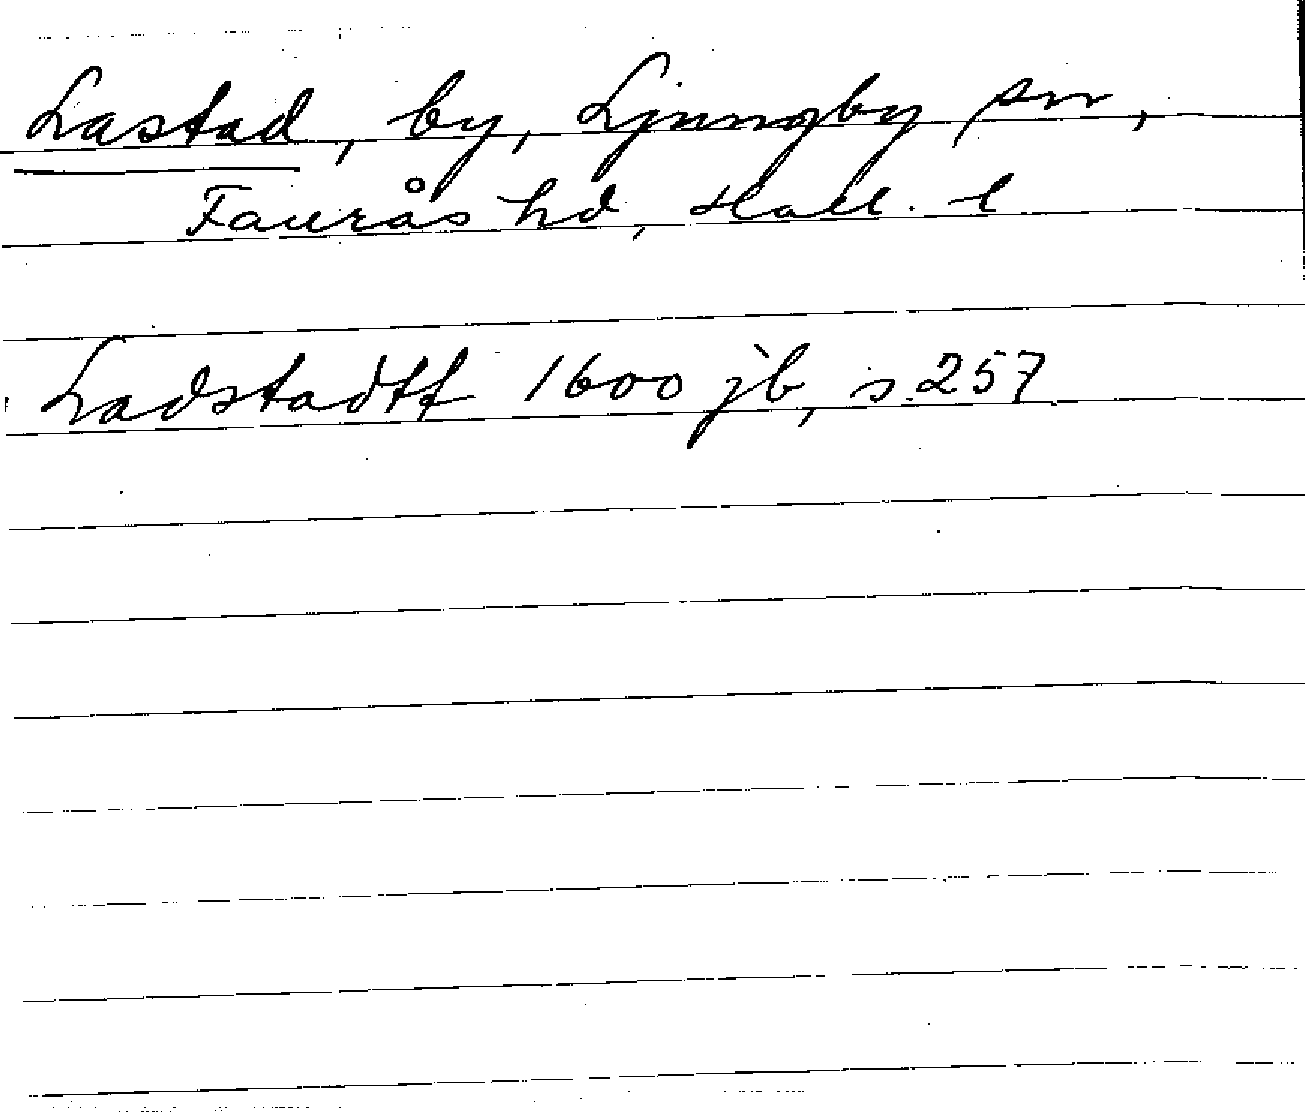 Lastad, by, Ljungby sn,
Faurås hd, Hall. l
Ladstadtt 1600 jb, s. 257